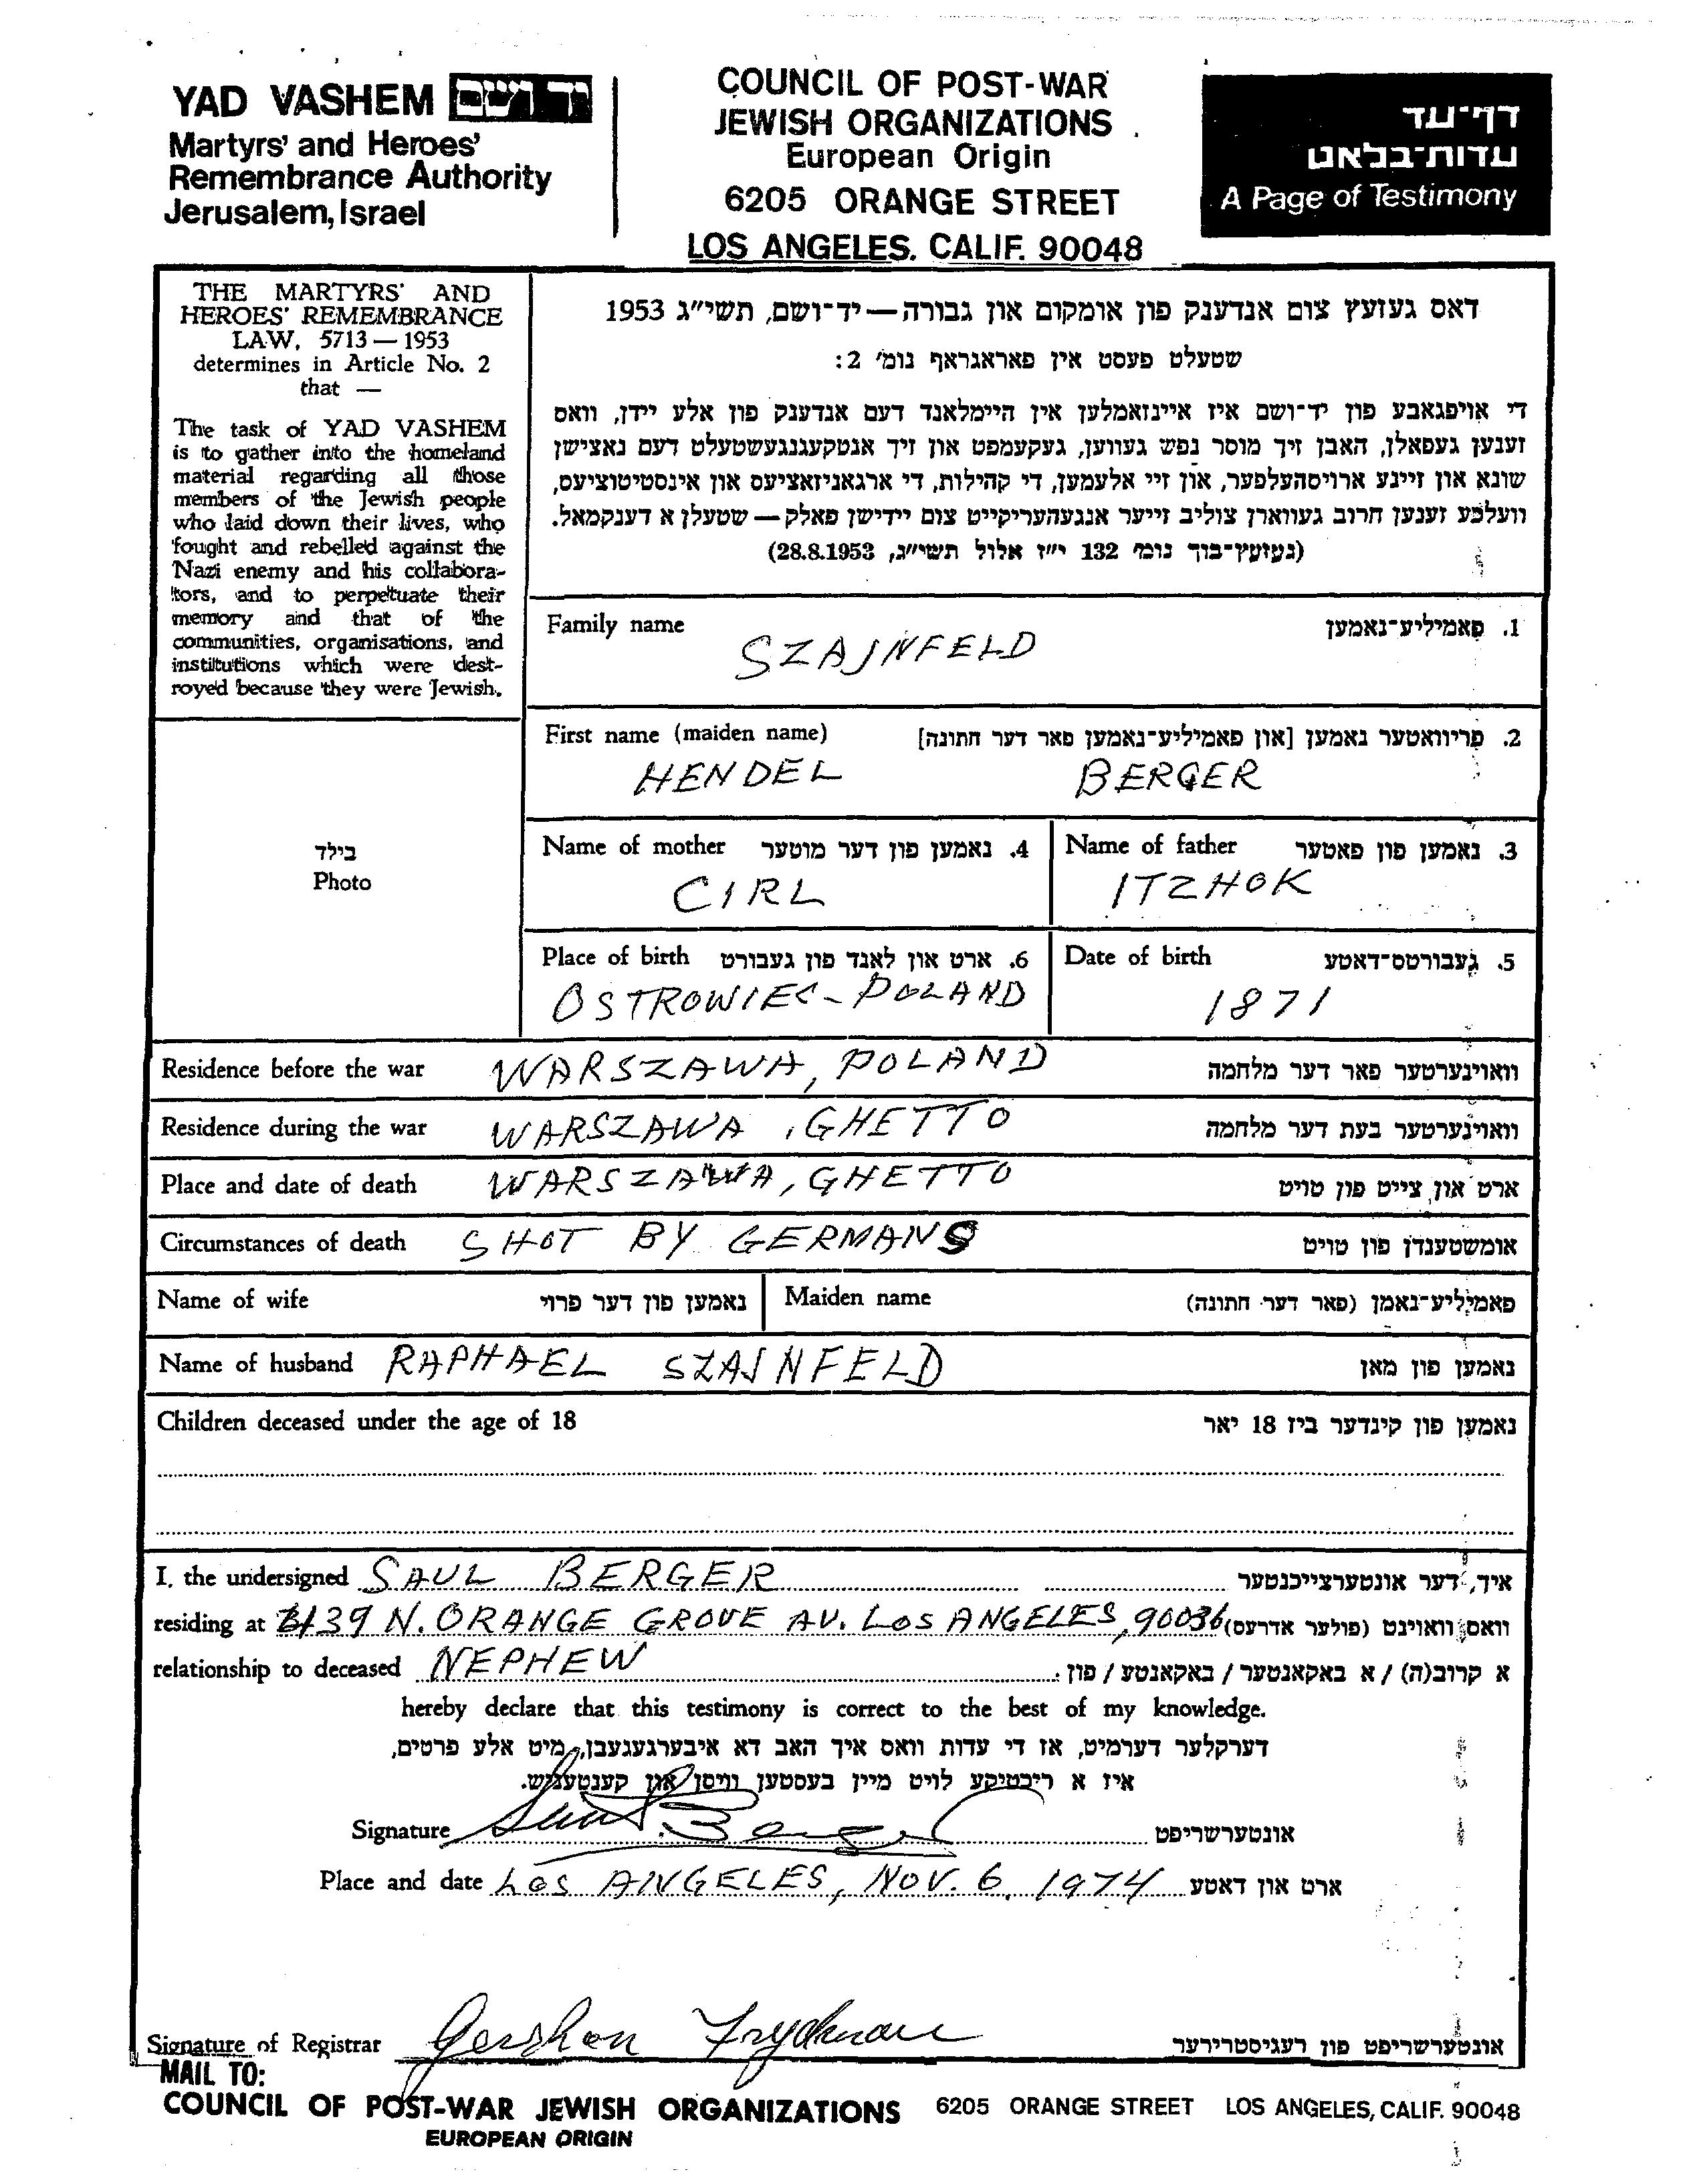 YAD VASHEM יד ושם
Martyrs' and Heroes'
Remembrance Authority
Jerusalem, Israel
COUNCIL OF POST-WAR
JEWISH ORGANIZATIONS
European Origin
6205 ORANGE STREET
LOS ANGELES, CALIF. 90048
דף־עד
עדות־בלאט
A Page of Testimony
THE MARTYRS' AND
HEROES' REMEMBRANCE
LAW, 5713 — 1953
determines in Article No. 2
that —
The task of YAD VASHEM
is to gather into the homeland
material regarding all those
members of the Jewish people
who laid down their lives, who
fought and rebelled against the
Nazi enemy and his collabora-
tors, and to perpetuate their
memory and that of the
communities, organisations, and
institutions which were dest-
royed because they were Jewish.
דאס געזעץ צום אנדענק פון אומקום און גבורה — יד־ושם, תשי״ג 1953
שטעלט פעסט אין פאראגראף נומ׳ 2:
די אויפגאבע פון יד־ושם איז איינזאמלען אין היימלאנד דעם אנדענק פון אלע יידן, וואס
זענען געפאלן, האבן זיך מוסר נפש געווען, געקעמפט און זיך אנטקעגנגעשטעלט דעם נאצישן
שונא און זיינע ארויסהעלפער, און זיי אלעמען, די קהילות, די ארגאניזאציעס און אינסטיטוציעס,
וועלכע זענען חרוב געווארן צוליב זייער אנגעהעריקייט צום יידישן פאלק — שטעלן א דענקמאל.
(געזעץ־בוך נומ׳ 132 י״ז אלול תשי״ג, 28.8.1953)
Family name 1. פאמיליע־נאמען
SZAJNFELD
First name (maiden name) 2. פריוואטער נאמען [און פאמיליע־נאמען פאר דער חתונה]
HENDEL BERGER
בילד
Photo
Name of mother 4. נאמען פון דער מוטער
CIRL
Name of father 3. נאמען פון פאטער
ITZHOK
Place of birth 6. ארט און לאנד פון געבורט
OSTROWIEC - POLAND
Date of birth 5. געבורטס־דאטע
1871
Residence before the war WARSZAWA, POLAND וואוינערטער פאר דער מלחמה
Residence during the war WARSZAWA, GHETTO וואוינערטער בעת דער מלחמה
Place and date of death WARSZAWA, GHETTO ארט און צייט פון טויט
Circumstances of death SHOT BY GERMANS אומשטענדן פון טויט
Name of wife נאמען פון דער פרוי Maiden name פאמיליע־נאמן (פאר דער חתונה)
Name of husband RAPHAEL SZAJNFELD נאמען פון מאן
Children deceased under the age of 18 נאמען פון קינדער ביז 18 יאר
I, the undersigned SAUL BERGER איך, דער אונטערצייכנטער
residing at 139 N. ORANGE GROVE AV. LOS ANGELES, 90036 וואס וואוינט (פולער אדרעס)
relationship to deceased NEPHEW א קרוב(ה) / א באקאנטער / באקאנטע / פון:
hereby declare that this testimony is correct to the best of my knowledge.
דערקלער דערמיט, אז די עדות וואס איך האב דא איבערגעגעבן, מיט אלע פרטים,
איז א ריכטיקע לויט מיין בעסטען וויסן און קענטעניש.
Signature Saul Berger אונטערשריפט
Place and date LOS ANGELES, NOV. 6, 1974 ארט און דאטע
Signature of Registrar Gershon Frydman אונטערשריפט פון רעגיסטרירער
MAIL TO:
COUNCIL OF POST-WAR JEWISH ORGANIZATIONS 6205 ORANGE STREET LOS ANGELES, CALIF. 90048
EUROPEAN ORIGIN